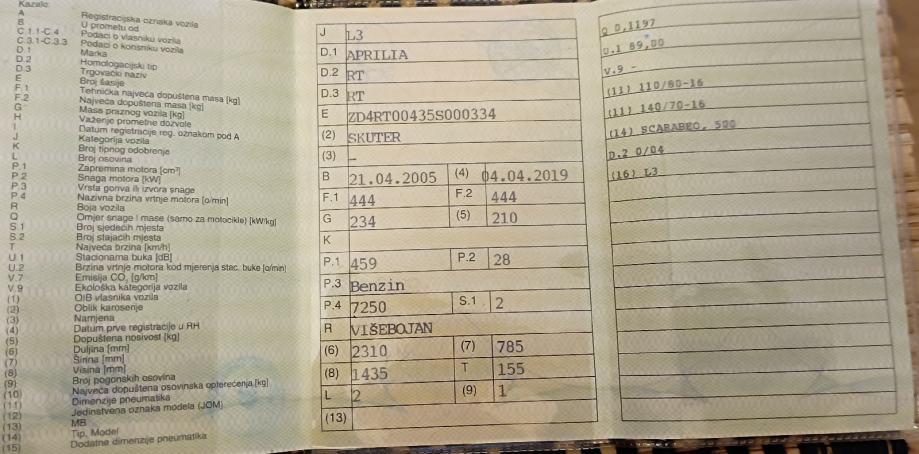 Kazalo:
A Registracijska oznaka vozila
B U prometu od
C.1.1-C.4 Podaci o vlasniku vozila
C.3.1-C.3.3 Podaci o korisniku vozila
D.1 Marka
D.2 Homologacijski tip
D.3 Trgovački naziv
E Broj šasije
F.1 Tehnička najveća dopuštena masa [kg]
F.2 Najveća dopuštena masa [kg]
G Masa praznog vozila [kg]
H Važenje prometne dozvole
I Datum registracije reg. oznakom pod A
J Kategorija vozila
K Broj tipnog odobrenja
L Broj osovina
P.1 Zapremina motora [cm³]
P.2 Snaga motora [kW]
P.3 Vrsta goriva ili izvora snage
P.4 Nazivna brzina vrtnje motora [o/min]
R Boja vozila
Q Omjer snage i mase (samo za motocikle) [kW/kg]
S.1 Broj sjedećih mjesta
S.2 Broj stajaćih mjesta
T Najveća brzina [km/h]
U.1 Stacionarna buka [dB]
U.2 Brzina vrtnje motora kod mjerenja stac. buke [o/min]
V.7 Emisija CO₂ [g/km]
V.9 Ekološka kategorija vozila
(1) OIB vlasnika vozila
(2) Oblik karoserije
(3) Namjena
(4) Datum prve registracije u RH
(5) Dopuštena nosivost [kg]
(6) Duljina [mm]
(7) Širina [mm]
(8) Visina [mm]
(9) Broj pogonskih osovina
(10) Najveća dopuštena osovinska opterećenja [kg]
(11) Dimenzije pneumatika
(12) Jedinstvena oznaka modela (JOM)
(13) MB
(14) Tip, Model
(15) Dodatne dimenzije pneumatika
J L3
D.1 APRILIA
D.2 RT
D.3 RT
E ZD4RT00435S000334
(2) SKUTER
(3) –
B 21.04.2005 (4) 04.04.2019
F.1 444 F.2 444
G 234 (5) 210
K
P.1 459 P.2 28
P.3 Benzin
P.4 7250 S.1 2
R VIŠEBOJAN
(6) 2310 (7) 785
(8) 1435 T 155
L 2 (9) 1
(13)
Q 0,1197
U.1 89,00
V.9 -
(11) 110/80-16
(11) 140/70-16
(14) SCARABEO, 500
D.2 0/04
(16) L3